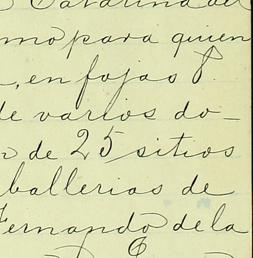 Catarina del
mo para quien
, en fojas 8.
de varios do-
de 25 sitios
ballerias de
Fernando de la